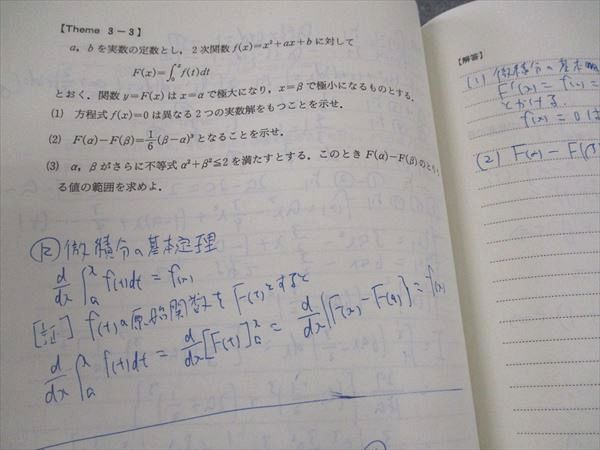 【Theme 3－3】
a, b を実数の定数とし，2次関数 f(x)=x²+ax+b に対して
F(x)=∫₀ˣ f(t)dt
とおく．関数 y=F(x) は x=α で極大になり，x=β で極小になるものとする．
(1) 方程式 f(x)=0 は異なる2つの実数解をもつことを示せ．
(2) F(α)−F(β)=1/6(β−α)³ となることを示せ．
(3) α, β がさらに不等式 α²+β²≦2 を満たすとする．このとき F(α)−F(β) のとり
る値の範囲を求めよ．
微積分の基本定理
d/dx ∫ₐˣ f(t)dt = f(x)
[証] f(t)の原始関数を F(t)とすると
d/dx ∫ₐˣ f(t)dt = d/dx [F(t)]ₐˣ = d/dx {F(x) − F(a)} = f(x)
【解答】
(1) 微積分の基本
F'(x) = f(x) =
とかける.
f(x) = 0 は
(2) F(α) − F(β)